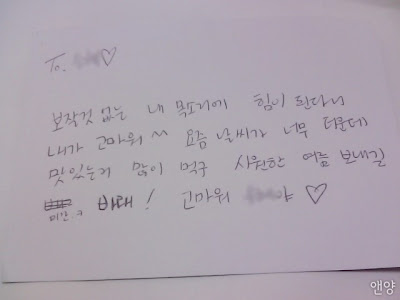 To. ♡
보잘것 없는 내 목소리에 힘이 된다니
내가 고마워 ^^ 요즘 날씨가 너무 더운데
맛있는거 많이 먹구 시원한 여름 보내길
바래! 고마워 야 ♡
미안..
앤양